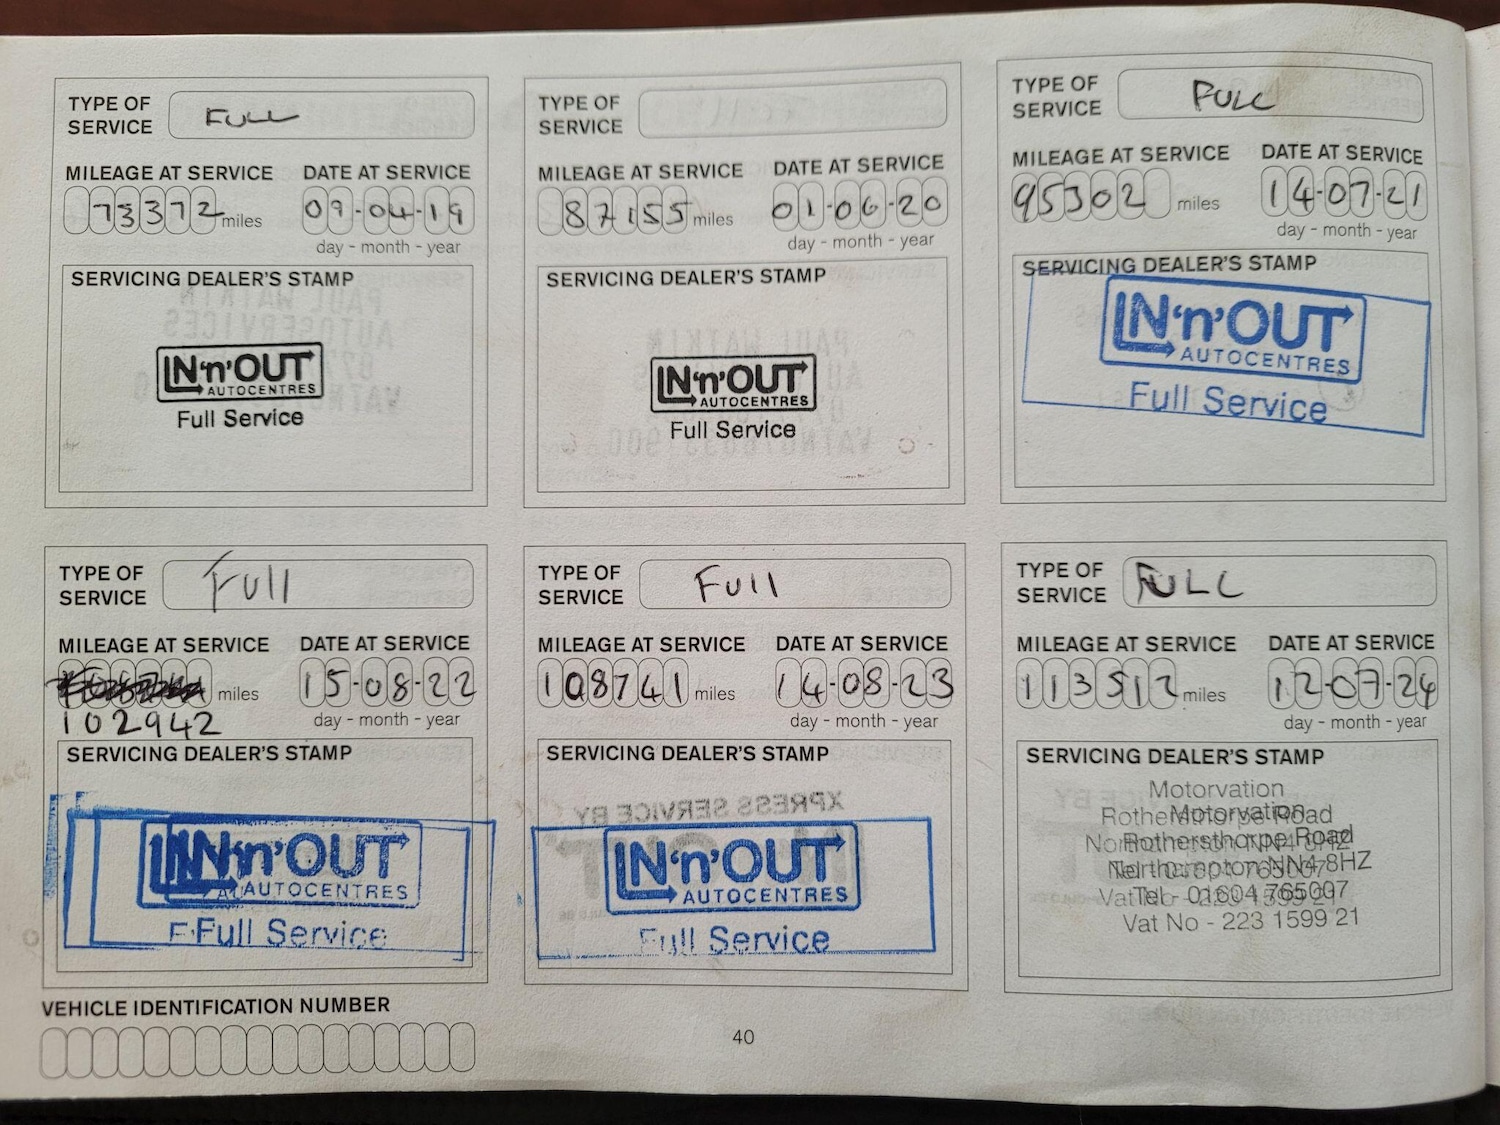 TYPE OF
SERVICE
FULL
MILEAGE AT SERVICE
DATE AT SERVICE
73372 miles
09-04-19
day - month - year
SERVICING DEALER'S STAMP
IN'n'OUT
AUTOCENTRES
Full Service
TYPE OF
SERVICE
MILEAGE AT SERVICE
DATE AT SERVICE
87155 miles
01-06-20
day - month - year
SERVICING DEALER'S STAMP
IN'n'OUT
AUTOCENTRES
Full Service
TYPE OF
SERVICE
FULL
MILEAGE AT SERVICE
DATE AT SERVICE
95302 miles
14-07-21
day - month - year
SERVICING DEALER'S STAMP
IN'n'OUT
AUTOCENTRES
Full Service
TYPE OF
SERVICE
Full
MILEAGE AT SERVICE
DATE AT SERVICE
miles
15-08-22
102942
day - month - year
SERVICING DEALER'S STAMP
IN'n'OUT
AUTOCENTRES
Full Service
TYPE OF
SERVICE
Full
MILEAGE AT SERVICE
DATE AT SERVICE
108741 miles
14-08-23
day - month - year
SERVICING DEALER'S STAMP
IN'n'OUT
AUTOCENTRES
Full Service
TYPE OF
SERVICE
FULL
MILEAGE AT SERVICE
DATE AT SERVICE
113512 miles
12-07-24
day - month - year
SERVICING DEALER'S STAMP
Motorvation
Motorvation
Rothersthorpe Road
Northampton NN4 8HZ
Tel - 01604 765007
Vat No - 223 1599 21
VEHICLE IDENTIFICATION NUMBER
40